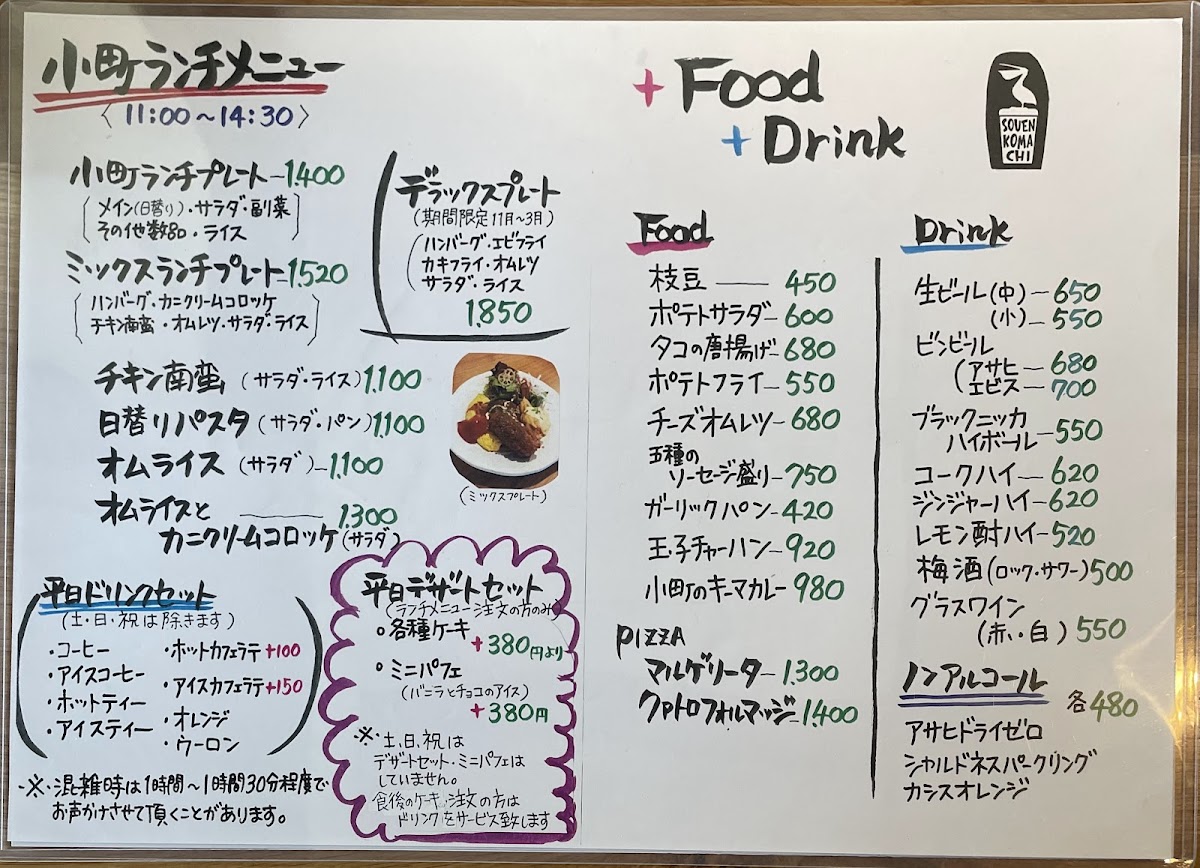 小町ランチメニュー
〈 11:00～14:30 〉
小町ランチプレート 1.400
(メイン(日替り)・サラダ・副菜
その他数品・ライス)
ミックスランチプレート 1.520
(ハンバーグ・カニクリームコロッケ
チキン南蛮・オムレツ・サラダ・ライス)
デラックスプレート
(期間限定11月～3月)
(ハンバーグ・エビフライ
カキフライ・オムレツ
サラダ・ライス
1.850
チキン南蛮 (サラダ・ライス) 1.100
日替りパスタ (サラダ・パン) 1.100
オムライス (サラダ) 1.100
オムライスと 1.300
カニクリームコロッケ (サラダ)
(ミックスプレート)
平日ドリンクセット
(土・日・祝は除きます)
・コーヒー
・アイスコーヒー
・ホットティー
・アイスティー
・ホットカフェラテ +100
・アイスカフェラテ +150
・オレンジ
・ウーロン
※混雑時は1時間～1時間30分程度で
お声かけさせて頂くことがあります。
平日デザートセット
(ランチメニュー注文の方のみ)
・各種ケーキ
+380円より
・ミニパフェ
(バニラとチョコのアイス)
+380円
※土、日、祝は
デザートセット・ミニパフェは
していません。
食後のケーキ注文の方は
ドリンクをサービス致します
+ Food
+ Drink
SOUEN
KOMA
CHI
Food
枝豆 450
ポテトサラダ 600
タコの唐揚げ 680
ポテトフライ 550
チーズオムレツ 680
五種の
ソーセージ盛り 750
ガーリックパン 420
玉子チャーハン 920
小町のキーマカレー 980
PIZZA
マルゲリータ 1.300
クアトロフォルマッジ 1.400
Drink
生ビール (中) 650
(小) 550
ビンビール
(アサヒ 680
エビス 700
ブラックニッカ
ハイボール 550
コークハイ 620
ジンジャーハイ 620
レモン酎ハイ 520
梅酒 (ロック・サワー) 500
グラスワイン
(赤・白) 550
ノンアルコール
各480
アサヒドライゼロ
シャルドネスパークリング
カシスオレンジ